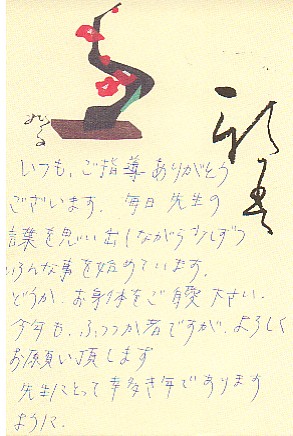 新春
いつも、ご指導ありがとう
ございます。毎日先生の
言葉を思い出しながら少しずつ
いろんな事を始めています。
どうか、お身体をご自愛下さい。
今年も、ふつつか者ですが、よろしく
お願い頂します
先生にとって幸多き年であります
ように。